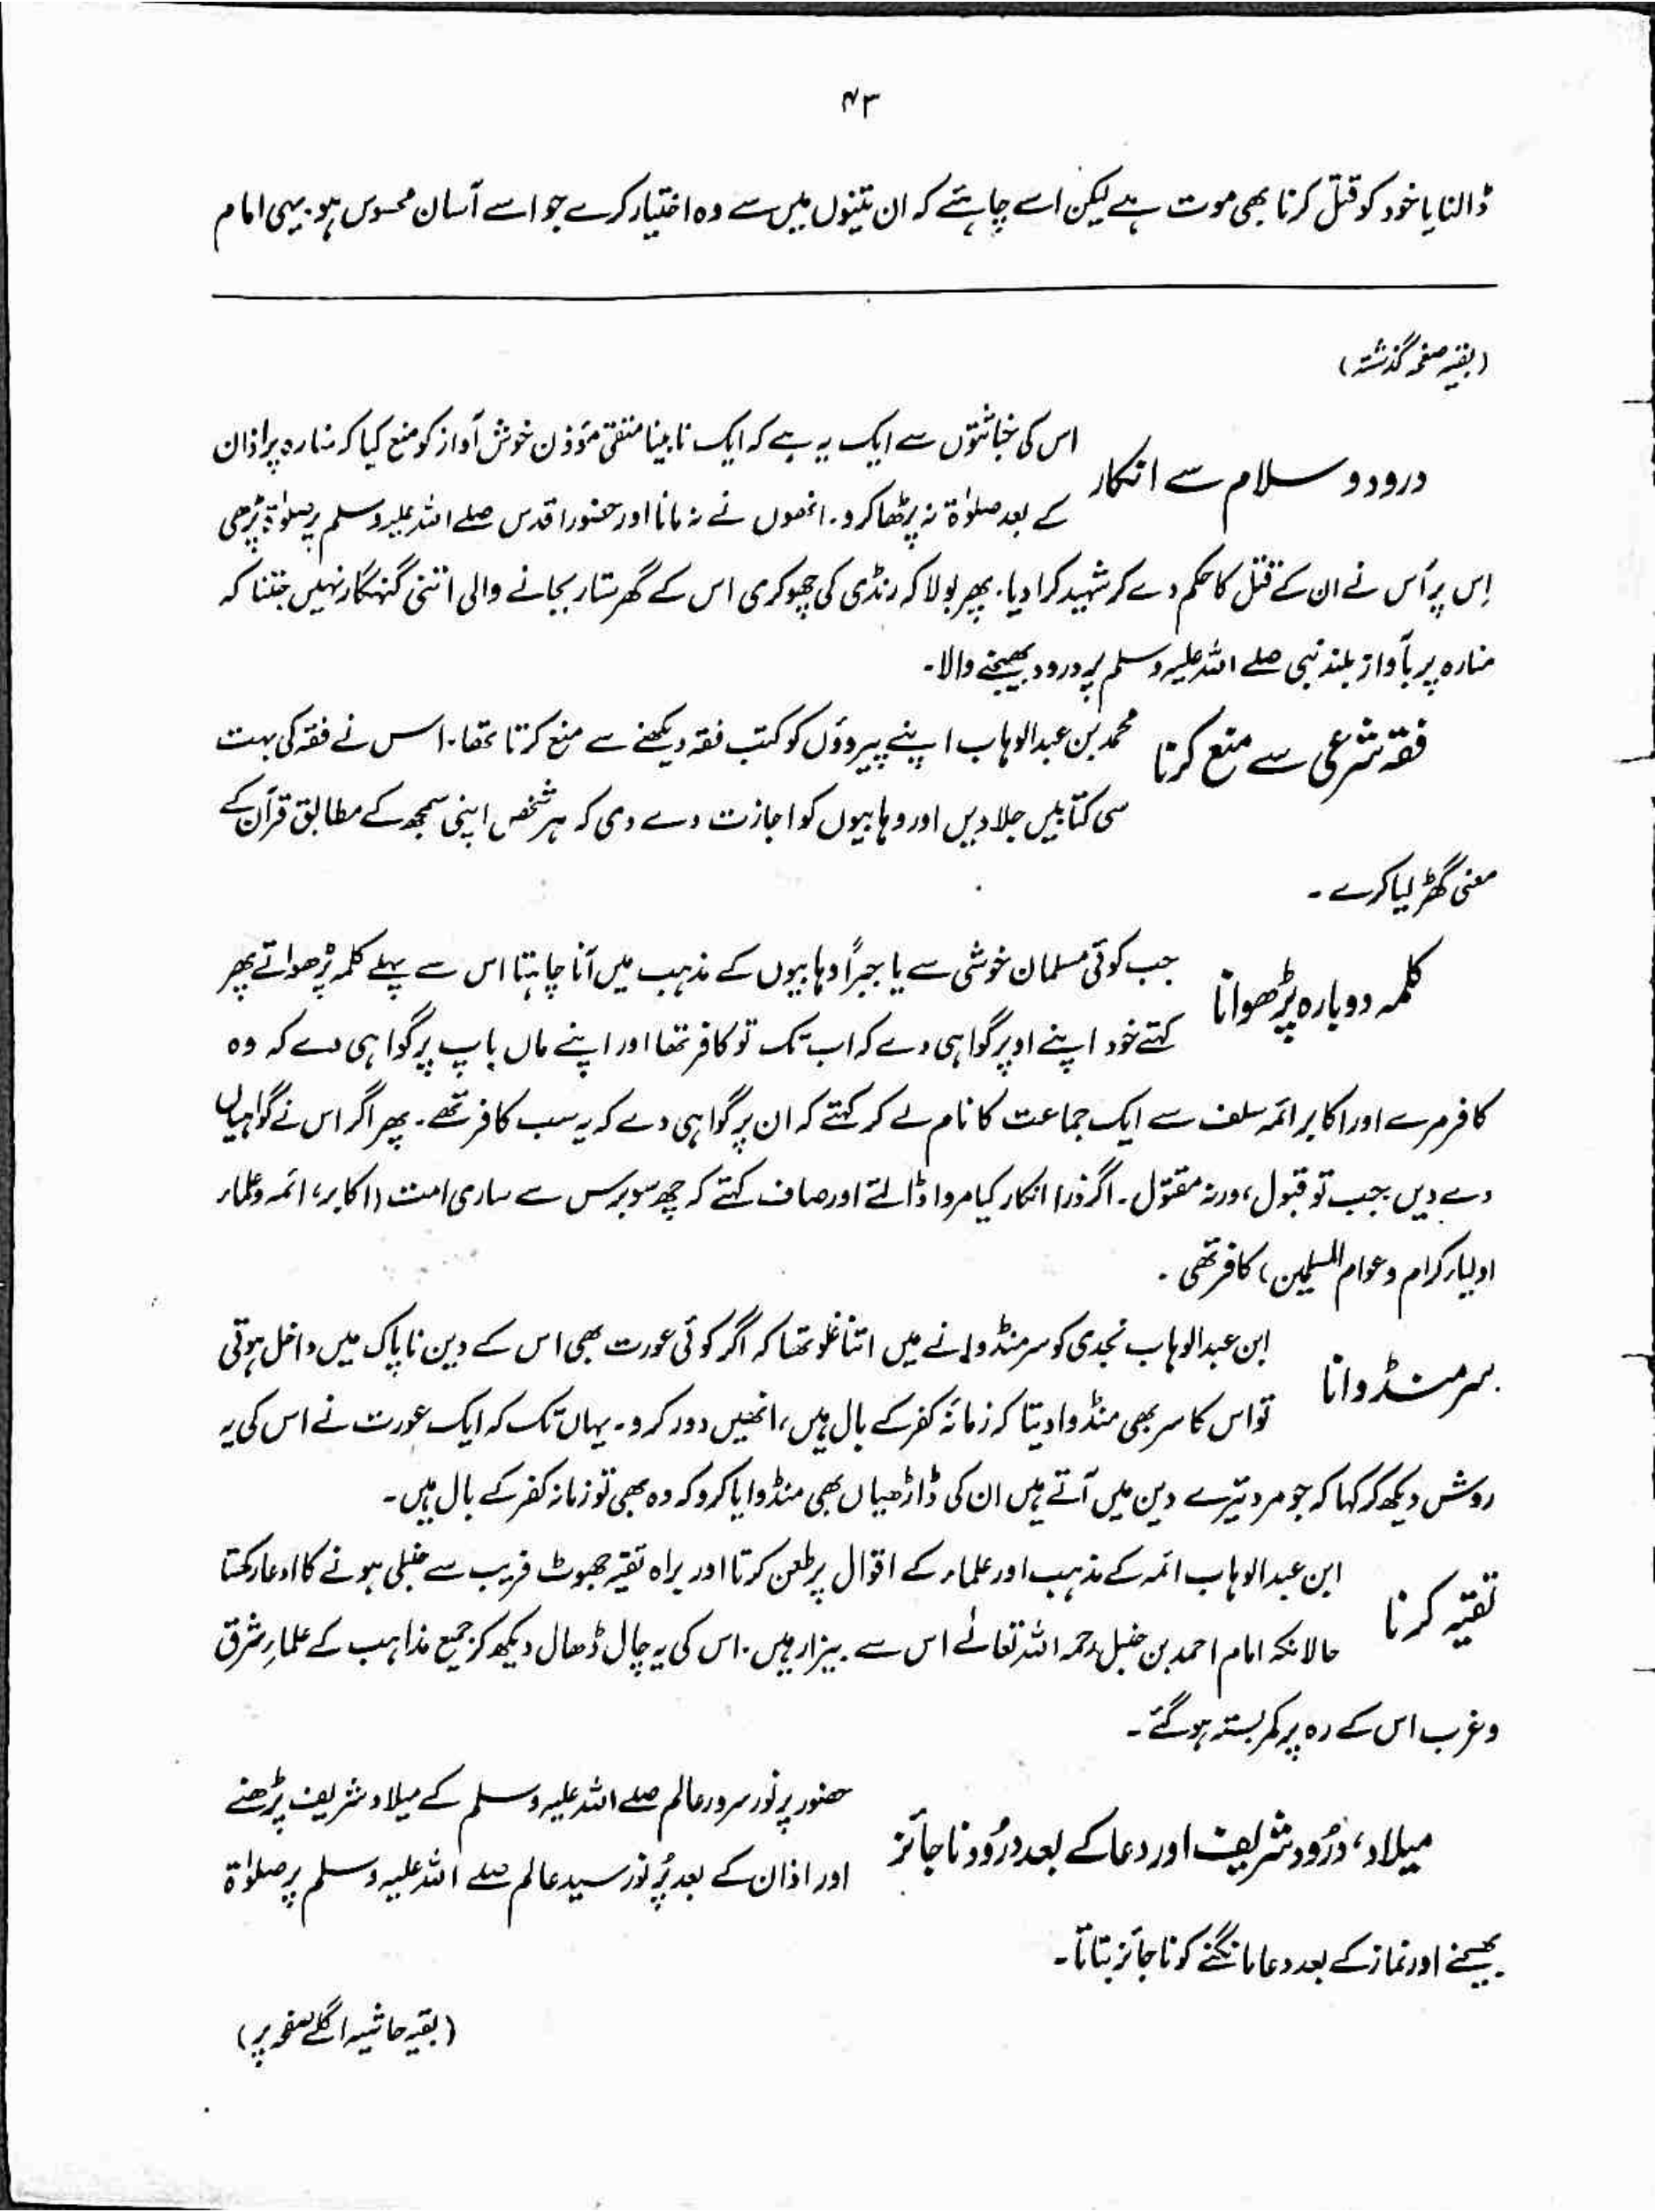 ۴۳
ڈالنا یا خود کو قتل کرنا بھی موت ہے لیکن اسے چاہئے کہ ان تینوں میں سے وہ اختیار کرے جو اسے آسان محسوس ہو۔ یہی امام
(بقیہ صفحہ گذشتہ)
درود و سلام سے انکار
اس کی خباثتوں سے ایک یہ ہے کہ ایک نابینا متقی مؤذن خوش آواز کو منع کیا کہ منارہ پر اذان
کے بعد صلوٰۃ نہ پڑھا کرو۔ انھوں نے نہ مانا اور حضور اقدس صلے اللہ علیہ وسلم پر صلوٰۃ پڑھی
اِس پر اُس نے ان کے قتل کا حکم دے کر شہید کرا دیا۔ پھر بولا کہ رنڈی کی چھوکری اس کے گھر ستار بجانے والی اتنی گنہگار نہیں جتنا کہ
منارہ پر بآواز بلند نبی صلے اللہ علیہ وسلم پر درود بھیجنے والا۔
فقہ شرعی سے منع کرنا
محمد بن عبدالوہاب اپنے پیروؤں کو کتب فقہ دیکھنے سے منع کرتا تھا۔ اس نے فقہ کی بہت
سی کتابیں جلا دیں اور وہابیوں کو اجازت دے دی کہ ہر شخص اپنی سمجھ کے مطابق قرآن کے
معنی گھڑ لیا کرے۔
کلمہ دوبارہ پڑھوانا
جب کوئی مسلمان خوشی سے یا جبراً وہابیوں کے مذہب میں آنا چاہتا اس سے پہلے کلمہ پڑھواتے پھر
کہتے خود اپنے اوپر گواہی دے کہ اب تک تو کافر تھا اور اپنے ماں باپ پر گواہی دے کہ وہ
کافر مرے اور اکابر ائمہ سلف سے ایک جماعت کا نام لے کر کہتے کہ ان پر گواہی دے کہ یہ سب کافر تھے۔ پھر اگر اس نے گواہیاں
دے دیں جب تو قبول، ورنہ مقتول۔ اگر ذرا انکار کیا مروا ڈالتے اور صاف کہتے کہ چھ سو برس سے ساری امت (اکابر، ائمہ و علماء
اولیاء کرام و عوام المسلمین) کافر تھی۔
سر منڈوانا
ابن عبدالوہاب نجدی کو سر منڈوانے میں اتنا غلو تھا کہ اگر کوئی عورت بھی اس کے دین ناپاک میں داخل ہوتی
تو اس کا سر بھی منڈوا دیتا کہ زمانۂ کفر کے بال ہیں، انھیں دور کرو۔ یہاں تک کہ ایک عورت نے اس کی یہ
روش دیکھ کر کہا کہ جو مرد تیرے دین میں آتے ہیں ان کی ڈاڑھیاں بھی منڈوایا کرو کہ وہ بھی تو زمانہ کفر کے بال ہیں۔
تقیّہ کرنا
ابن عبدالوہاب ائمہ کے مذہب اور علماء کے اقوال پر طعن کرتا اور براہ تقیہ جھوٹ فریب سے حنبلی ہونے کا ادعا رکھتا
حالانکہ امام احمد بن حنبل رحمہ اللہ تعالٰے اس سے بیزار ہیں۔ اس کی یہ چال ڈھال دیکھ کر جمیع مذاہب کے علماءِ شرق
و غرب اس کے رد پر کمر بستہ ہو گئے۔
میلاد، دُرُود شریف اور دعا کے بعد دُرُود ناجائز
حضور پر نور سرور عالم صلے اللہ علیہ وسلم کے میلاد شریف پڑھنے
اور اذان کے بعد پُر نور سید عالم صلے اللہ علیہ وسلم پر صلوٰۃ
بھیجنے اور نماز کے بعد دعا مانگنے کو ناجائز بتاتا۔
(بقیہ حاشیہ اگلے صفحہ پر)